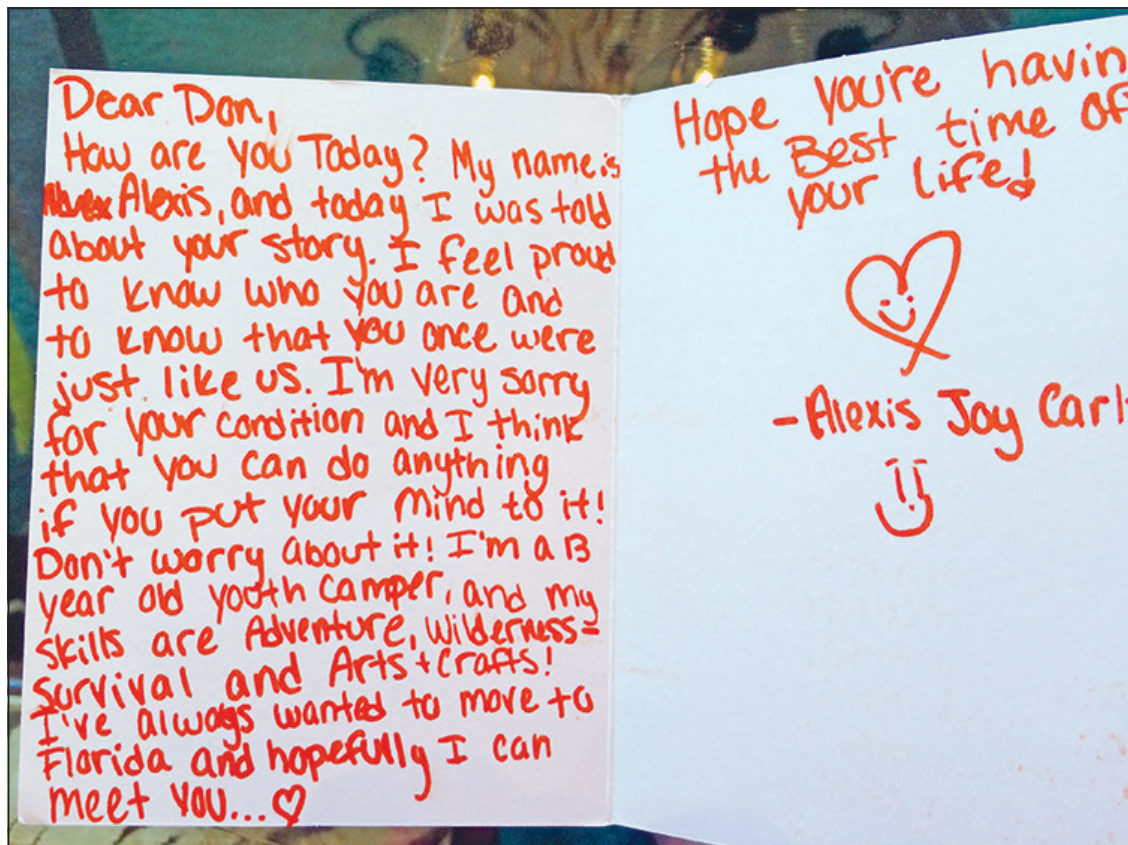 Dear Don,
How are you Today? My name is
Alexis, and today I was told
about your story. I feel proud
to know who you are and
to know that you once were
just like us. I'm very sorry
for your condition and I think
that you can do anything
if you put your mind to it!
Don't worry about it! I'm a 13
year old youth camper, and my
skills are Adventure, Wilderness=
Survival and Arts + Crafts!
I've always wanted to move to
Florida and hopefully I can
meet you...♡
Hope you're havin
the Best time of
your life!
-Alexis Joy Carl